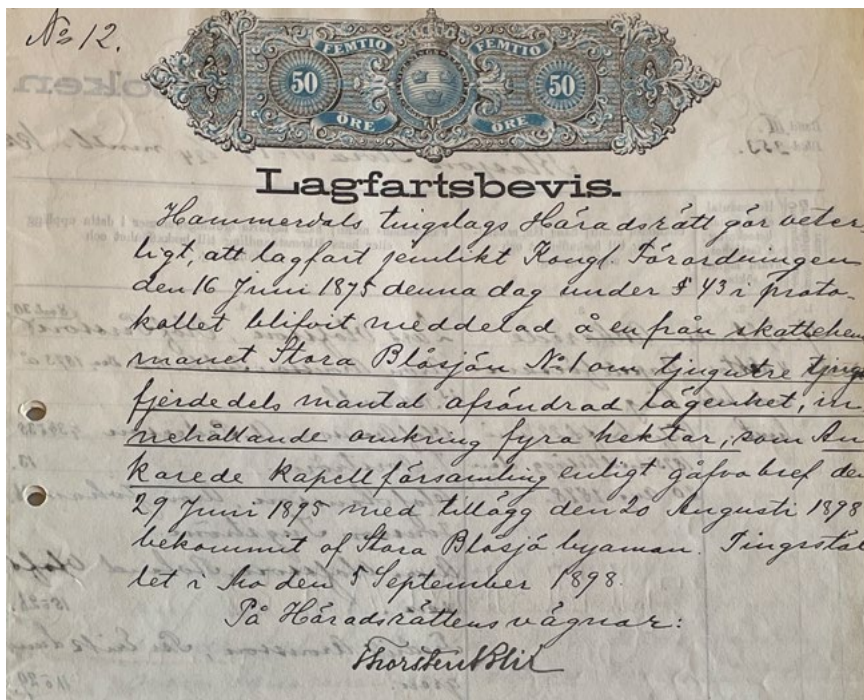 No 12.
FEMTIO FEMTIO
50 50
ÖRE ÖRE
Lagfartsbevis.
Hammerdals tingslags Häradsrätt gör veter-
ligt, att lagfart jemlikt Kongl. Förordningen
den 16 Juni 1875 denna dag under § 43 i proto-
kollet blifvit meddelad å en från skattehem
manet Stora Blåsjön No 1 om tjugutre tjugu
fjerdedels mantal afsöndrad lägenhet, in
nehållande omkring fyra hektar, som An
karede kapellförsamling enligt gåfvobref den
29 Juni 1895 med tillägg den 20 Augusti 1898
bekommit af Stora Blåsjö byamän. Tingsstäl
let i Mo den 5 September 1898.
På Häradsrättens vägnar: